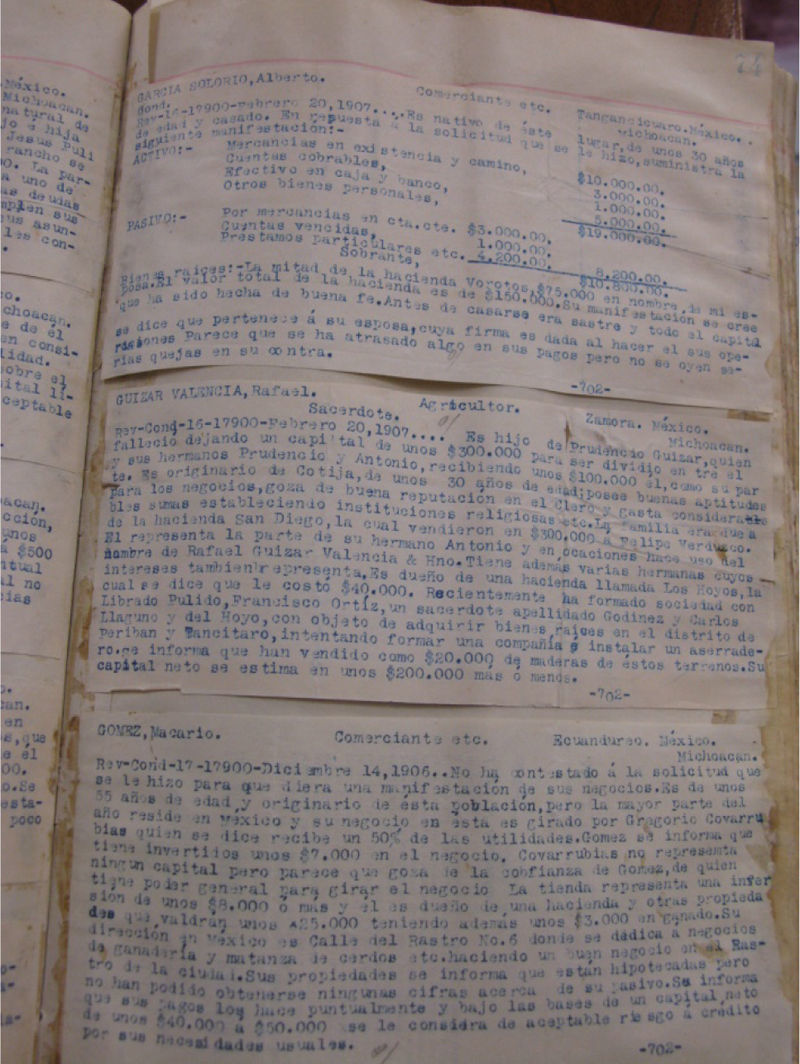 México.
Michoacan.
natural de
jo e hija
Jesus Puli
rancho se
o. La par-
a uno de
as deudas
mplen sus
sus asun-
les con-
co.
choacan.
e de él
en consi-
lidad.
sobre el
pital li-
ceptable
oacan.
cción,
unos
a $500
ntual
al no
cias
o.
can.
en
s,que
e él
00.
o.Se
esta-
poco
74
GARCIA SOLORIO,Alberto.
Comerciante etc.
Tangancicuaro.México.
Michoacan.
Cond.
Rev-16-17900-Febrero 20,1907....Es nativo de éste lugar,de unos 30 años
de edad y casado. En repuesta á la solicitud que se le hizo,suministra la
siguiente manifestación:-
ACTIVO:- Mercancias en existencia y camino, $10.000.00.
Cuentas cobrables, 3.000.00.
Efectivo en caja y banco, 1.000.00.
Otros bienes personales, 5.000.00.
$19.000.00.
PASIVO:- Por mercancias en cta.cte. $3.000.00.
Cuentas vencidas, 1.000.00.
Prestamos particulares etc. 4.200.00. 8.200.00.
Sobrante, $10.800.00.
Bienes raices:-La mitad de la hacienda Vorotos,$75.000 en nombre de mi es-
posa.El valor total de la hacienda es de $150.000.Su manifestación se cree
que ha sido hecha de buena fe.Antes de casarse era sastre y todo el capital
se dice que pertenece á su esposa,cuya firma es dada al hacer el sus ope-
raciones Parece que se ha atrasado algo en sus pagos pero no se oyen se-
rias quejas en su contra.
-702-
GUIZAR VALENCIA,Rafael.
Sacerdote. Agricultor.
Zamora. México.
Michoacan.
Rev-Cond-16-17900-Febrero 20,1907.... Es hijo de Prudencio Guizar,quien
falleció dejando un capital de unos $300.000 para ser dividio en tre el
y sus hermanos Prudencio y Antonio,recibiendo unos $100.000 él,como su par
te. Es originario de Cotija,de unos 30 años de edad;posee buenas aptitudes
para los negocios,goza de buena reputación en el Clero y gasta considera-
bles sumas estableciendo instituciones religiosas etc.La familia era dueña
de la hacienda San Diego,la cual vendieron en $300.000 a Felipe Verduzco.
El representa la parte de su hermano Antonio y en ocaciones hace uso del
nombre de Rafael Guizar Valencia & Hno.Tiene además varias hermanas cuyos
intereses tambien representa.Es dueño de una hacienda llamada Los Hoyos,la
cual se dice que le costó $40.000. Recientemente ha formado sociedad con
Librado Pulido,Francisco Ortíz,un sacerdote apellidado Godinez y Carlos
Llaguno y del Hoyo,con objeto de adquirir bienes raices en el distrito de
Periban y Tancitaro,intentando formar una compañía é instalar un aserrade-
ro.se informa que han vendido como $20.000 de maderas de éstos terrenos.Su
capital neto se estima en unos $200.000 más ó menos.
-702-
GOMEZ,Macario.
Comerciante etc.
Ecuandureo. México.
Michoacan.
Rev-Cond-17-17900-Diciembre 14,1906..No ha contestado á la solicitud que
se le hizo para que diera una manifestación de sus negocios.Es de unos
55 años de edad,y originario de ésta población,pero la mayor parte del
año reside en México y su negocio en ésta es girado por Gregorio Covarru
bias quien se dice recibe un 50% de las utilidades.Gomez se informa que
tiene invertidos unos $7.000 en el negocio. Covarrubias no represemta
ningun capital pero parece que goza de la cobfianza de Gomez,de quien
tiene poder general para girar el negocio La tienda representa una inver
sión de unos $8.000 ó mas y él es dueño de una hacienda y otras propieda
des que valdrán unos 25.000 teniendo además unos $3.000 en ganado.Su
dirección en México es Calle del Rastro No.6 donde se dedica a negocios
de ganadería y matanza de cerdos etc.haciendo un buen negocio en el Ras-
tro de la ciudad.Sus propiedades se informa que están hipotecadas pero
no han podido obtenerse ningunas cifras acerca de su pasivo.Se informa
que sus pagos los hace puntualmente y bajo las bases de un capital neto
de unos $40.000 a $50.000 se le considra de aceptable riesgo á crédito
por sus necesidades usuales.
-702-